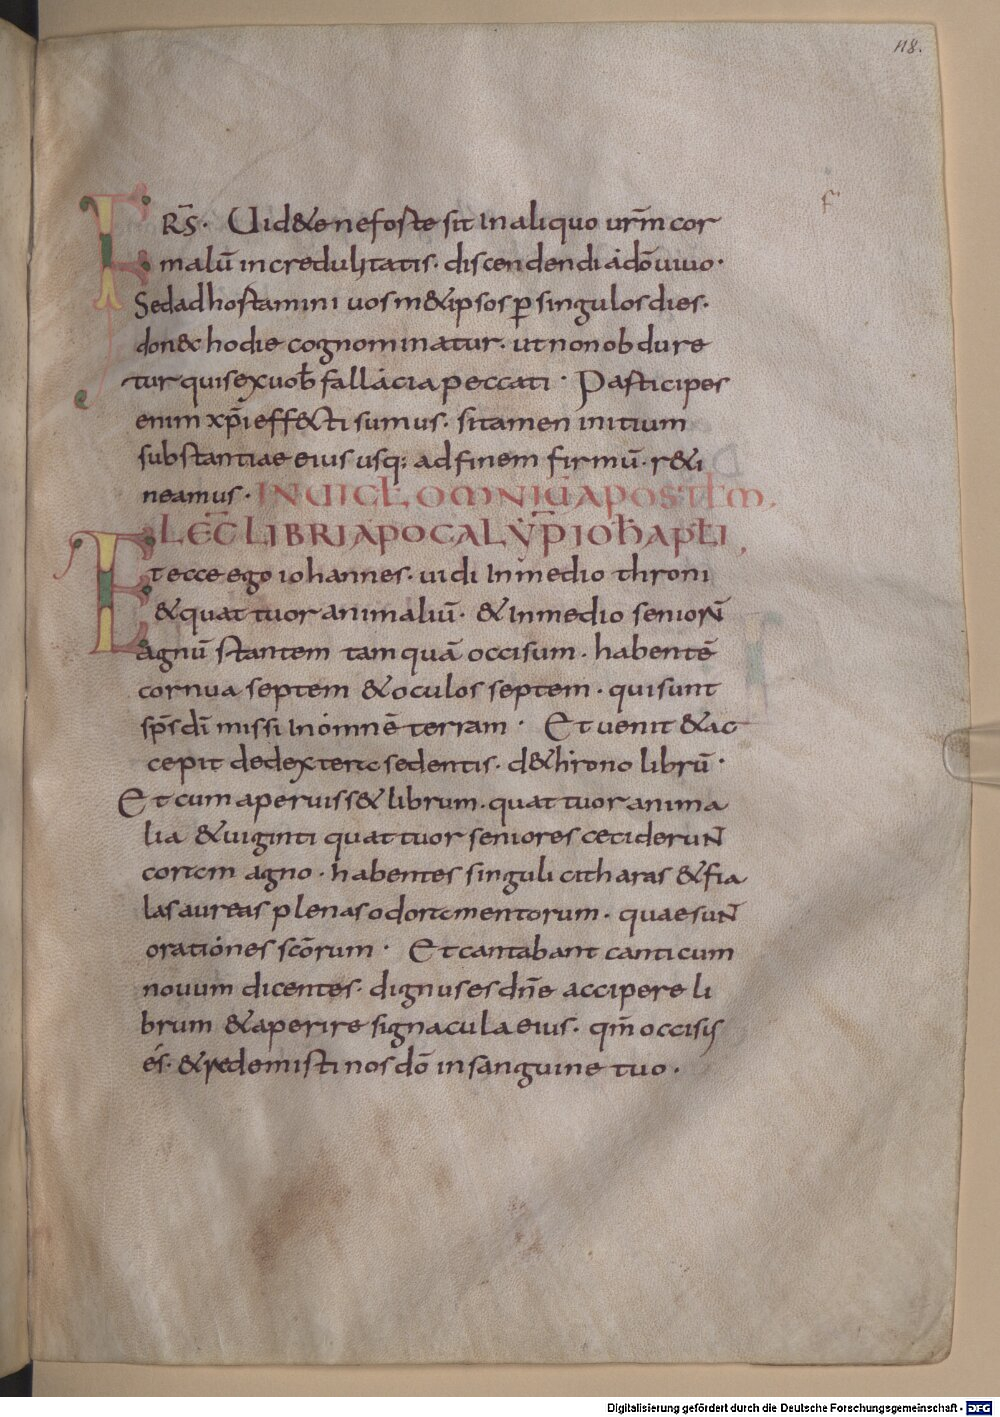 118.
f
FRS̄. Uidete ne forte sit in aliquo ur̄m cor
malū incredulitatis. discendendi a dō uiuo.
Sed adhortamini uosmetipsos ꝑ singulos dies.
donec hodie cognominatur. ut non obdure
tur quis ex uob̄ fallacia peccati. Participes
enim xp̄i effecti sumus. si tamen initium
substantiae eius usq; ad finem firmū reti
neamus. IN UIGL̄ OMNIŪ APOSTL̄M.
LEC̄ LIBRI APOCALYP̄ IOH̄ APL̄I,
Et ecce ego iohannes. uidi In medio throni
& quattuor animaliū. & In medio senioR̄
agnū stantem tamquā occisum. habentē
cornua septem & oculos septem. qui sunt
sp̄s dī missi In omnē terram. Et uenit & ac
cepit de dextera sedentis. de throno librū.
Et cum aperuisset librum. quattuor anima
lia & uiginti quattuor seniores ceciderunt
coram agno. habentes singuli citharas & fia
las aureas plenas odoramentorum. quae sunt
orationes scōrum. Et cantabant canticum
nouum dicentes. dignus es dn̄e accipere li
brum & aperire signacula eius. qm̄ occisus
es. & redemisti nos dō in sanguine tuo.
Digitalisierung gefördert durch die Deutsche Forschungsgemeinschaft - DFG